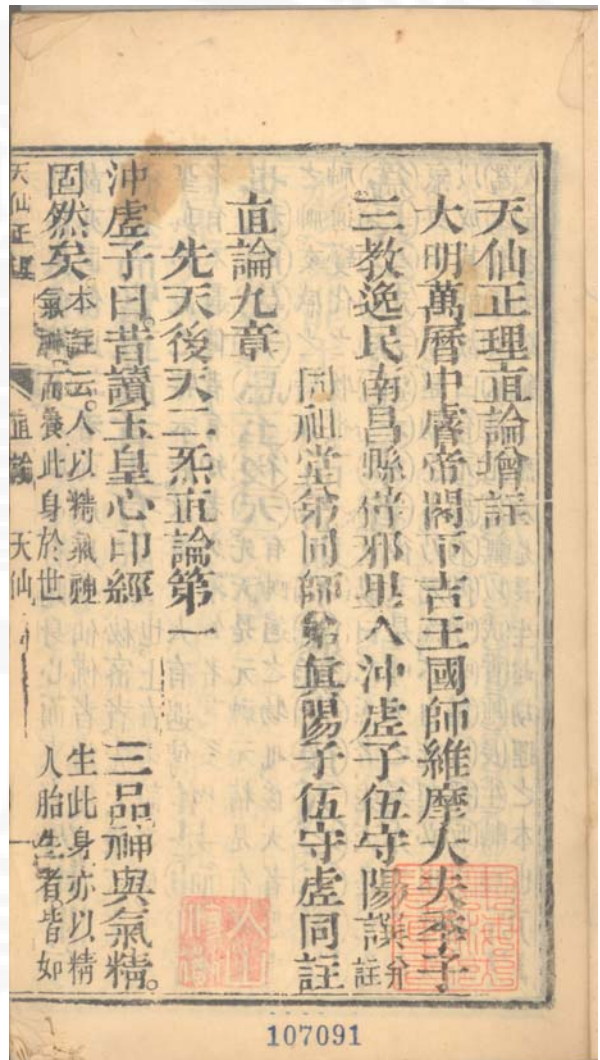 天仙正理直論增註
大明萬曆中睿帝閣下吉王國師維摩大夫季子
三教逸民南昌縣辟邪里人沖虛子伍守陽譔并註
同祖堂弟同師弟眞陽子伍守虛同註
直論九章
先天後天二炁直論第一
沖虛子曰。昔讀玉皇心印經
三品神與氣精。
固然矣本註云。人以精氣神
生此身亦以精
氣神而養此身於世
人胎生者。皆如
天仙正理 直論 天仙
107091